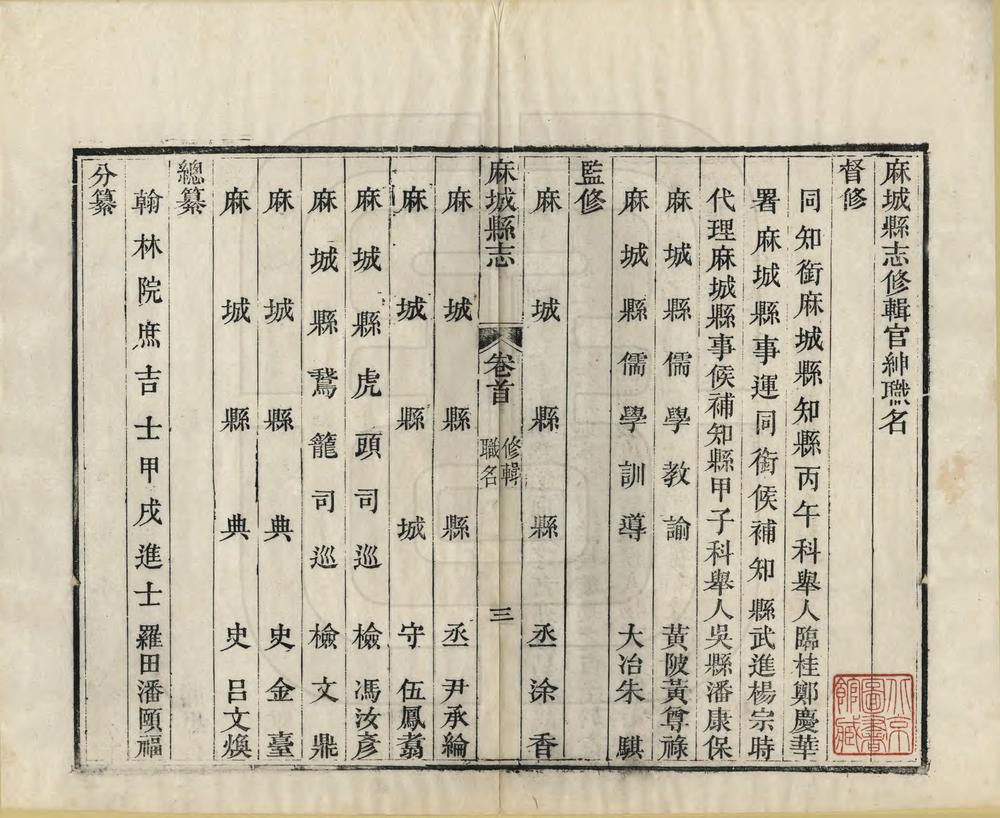 麻城縣志修輯官紳職名
督修
同知銜麻城縣知縣丙午科舉人臨桂鄭慶華
署麻城縣事運同銜候補知縣武進楊宗時
代理麻城縣事候補知縣甲子科舉人吳縣潘康保
麻城縣儒學教諭黃陂黃尊祿
麻城縣儒學訓導大冶朱騏
監修
麻城縣縣丞涂香
麻城縣志
卷首
修輯
職名
三
麻城縣縣丞尹承綸
麻城縣城守伍鳳翥
麻城縣虎頭司巡檢馮汝彥
麻城縣鵞籠司巡檢文鼎
麻城縣典史金臺
麻城縣典史呂文煥
總纂
翰林院庶吉士甲戌進士羅田潘頤福
分纂
北京
圖書
館藏